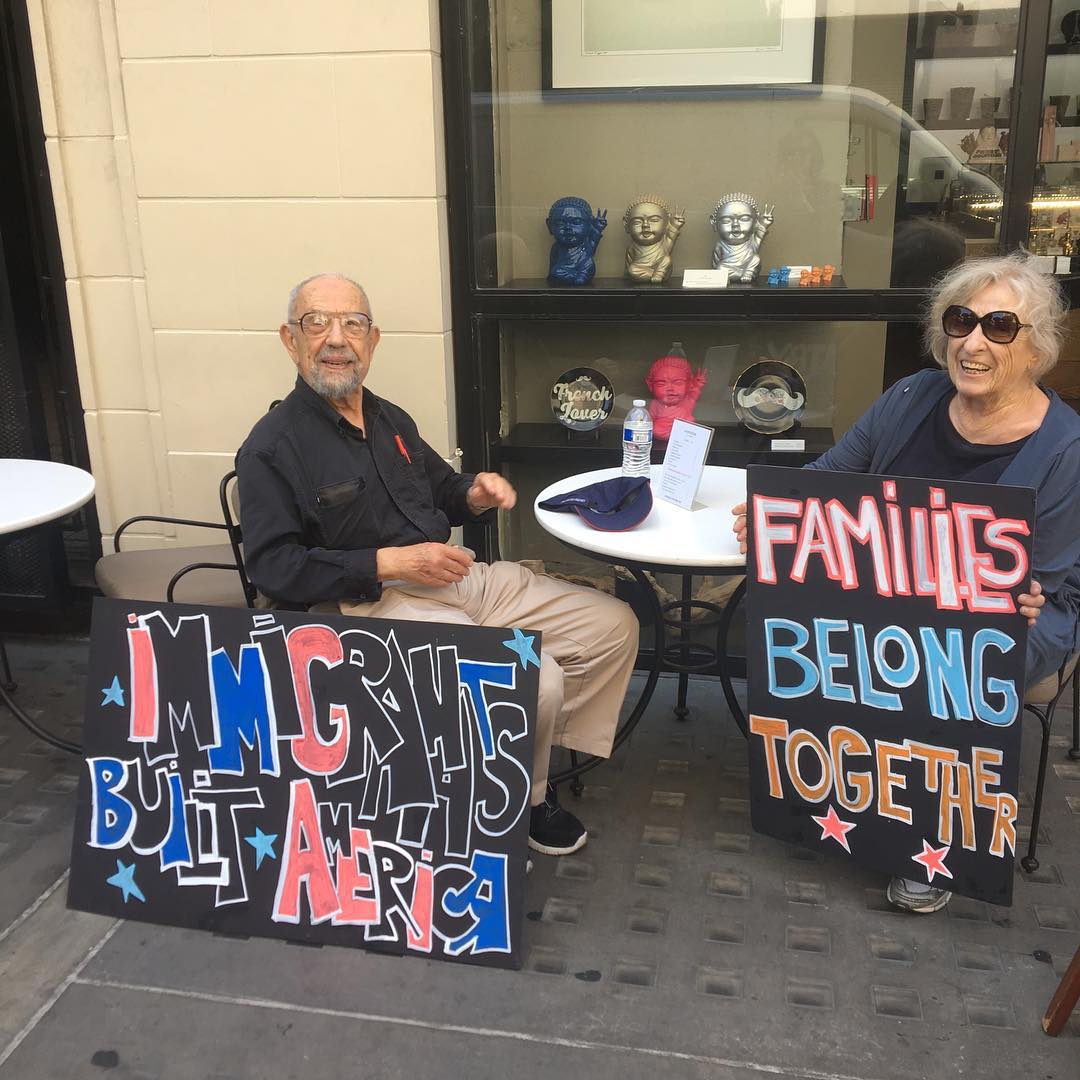 French
Lover
IMMIGRANTS
BUILT AMERICA
FAMILIES
BELONG
TOGETHER